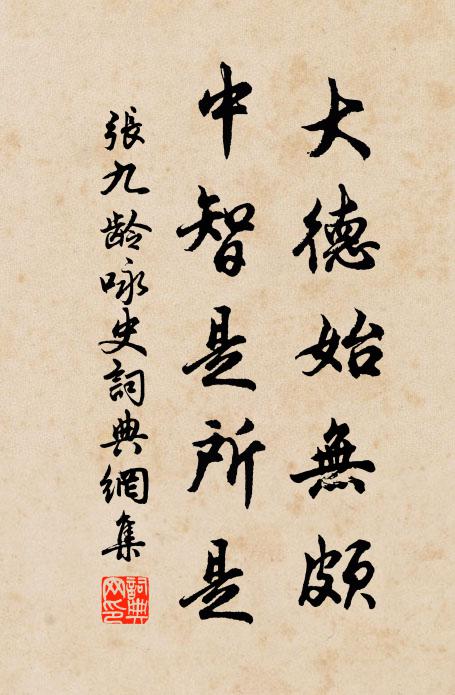 大德始無頗
中智是所是
張九龄咏史詞典網集
詞典